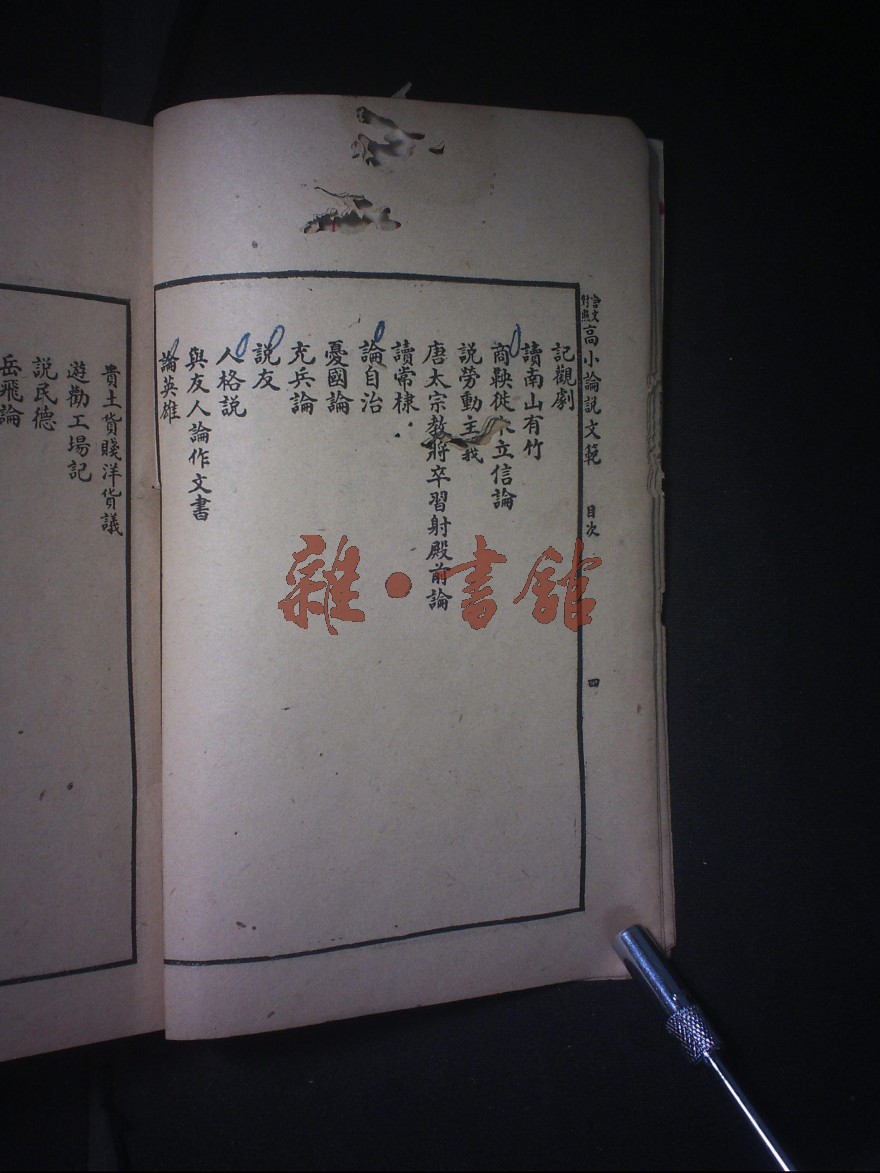 言文對照高小論說文範 目次 四
記觀劇
讀南山有竹
商鞅徙木立信論
說勞動主義
唐太宗教將卒習射殿前論
讀常棣
論自治
憂國論
充兵論
說友
人格說
與友人論作文書
論英雄
貴土貨賤洋貨議
遊勸工場記
說民德
岳飛論
雜·書館